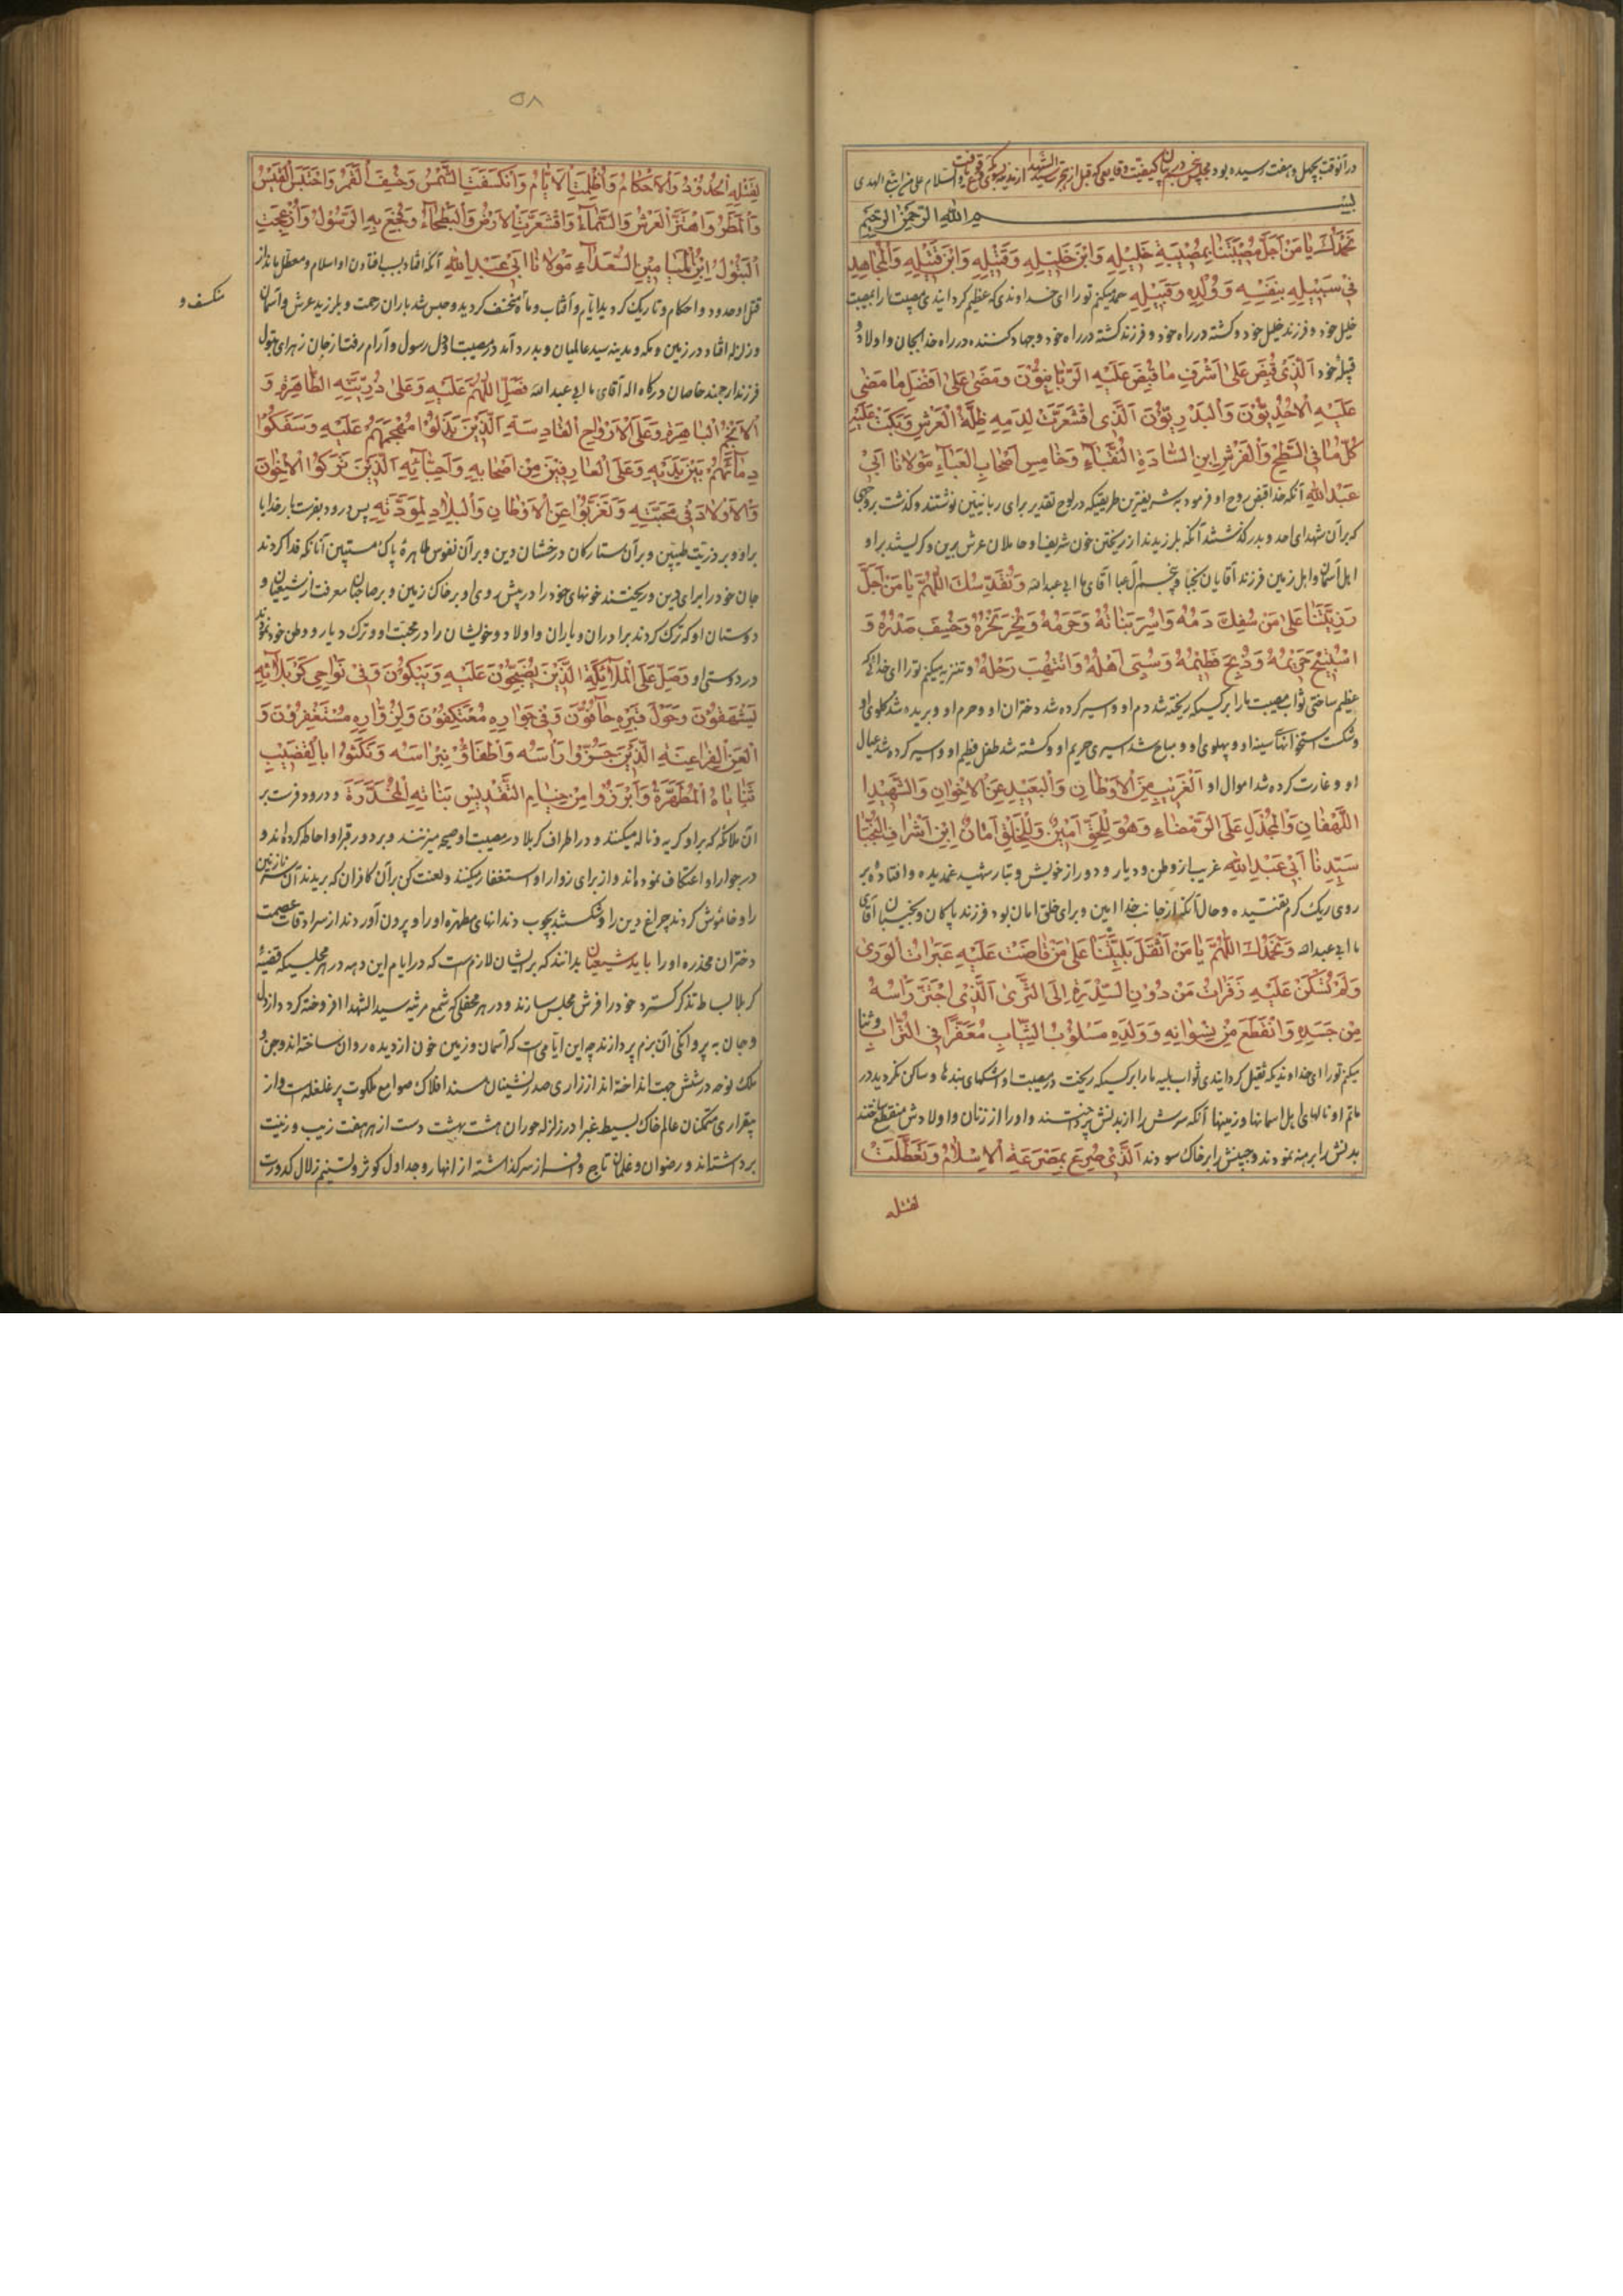 در آنوقت بچهل و هفت رسیده بود مجلس در بیان کیفیت وقایعی که قبل از سید الشهدا از مدینه والسلام علی من اتبع الهدی
بسم الله الرحمن الرحیم
نَحْمَدُكَ يَا مَنْ أَجَلَّ مُصِيبَتَنَا بِمُصِيبَةِ خَلِيلِهِ وَابْنِ خَلِيلِهِ وَقَتِيلِهِ وَابْنِ قَتِيلِهِ وَالْمُجَاهِدِ
فِي سَبِيلِهِ بِنَفْسِهِ وَوُلْدِهِ وَقَبِيلِهِ حمد میکنم تو را ای خداوندی که عظیم گردانیدی مصیبت ما را بمصیبت
خلیل خود و فرزند خلیل خود و کشته در راه خود و فرزند کشته در راه خود و جهاد کننده در راه خدا بجان و اولاد و
قبیلهٔ خود اَلَّذِي قُبِضَ عَلَى أَشْرَفِ مَا قُبِضَ عَلَيْهِ الرَّبَّانِيُّونَ وَمَضَى عَلَى أَفْضَلِ مَا مَضَى
عَلَيْهِ الْأُحُدِيُّونَ وَالْبَدْرِيُّونَ اَلَّذِي اقْشَعَرَّتْ لِدَمِهِ ظِلَّةُ الْعَرْشِ وَبَكَتْ عَلَيْهِ
كُلُّ مَا فِي السَّطْحِ وَالْفَرْشِ ابْنِ السَّادَةِ النُّقَبَاءِ وَخَامِسِ أَصْحَابِ الْعَبَاءِ مَوْلَانَا أَبِي
عَبْدِ اللهِ آنکه خدا قبض روح او فرمود بشریفترین طریقیکه در لوح تقدیر برای ربانیین نوشتند و گذشت بروجهی
که بر آن شهدای احد و بدر گذشتند آنکه بلرزیدند از ریختن خون شریف او حاملان عرش برین و گریستند بر او
اهل آسمان و اهل زمین فرزند آقایان نجبا و پنجم آل عبا آقای ما ابی عبد الله وَنُقَدِّسُكَ اللَّهُمَّ يَا مَنْ أَجَلَّ
رَزِيَّتَنَا عَلَى مَنْ سُفِكَ دَمُهُ وَأُسِرَ بَنَاتُهُ وَحَرَمُهُ وَنُحِرَ نَحْرُهُ وَخُسِفَ صَدْرُهُ وَ
اسْتُبِيحَ حَرِيمُهُ وَذُبِحَ فَطِيمُهُ وَسُبِيَ أَهْلُهُ وَانْتُهِبَ رَحْلُهُ و تنزیه میکنم تو را ای خدائیکه
عظیم ساختی ثواب مصیبت ما را بر کسیکه ریخته شد دم او و اسیر کرده شد دختران او و حرم او و بریده شد گلوی او
و شکست استخوانهای سینه او و پهلوی او و مباح شد اسیری حریم او و کشته شد طفل فطیم او و اسیر کرده شد عیال
او و غارت کرده شد اموال او اَلْغَرِيبِ مِنَ الْأَوْطَانِ وَالْبَعِيدِ عَنِ الْإِخْوَانِ وَالشَّهِيدِ
اللَّهْفَانِ وَالْمُجَدَّلِ عَلَى الرَّمْضَاءِ وَهُوَ لِلْحَقِّ أَمِينٌ وَلِلْخَلْقِ أَمَانٌ ابْنِ أَشْرَافِ النُّجَبَاءِ
سَيِّدِنَا أَبِي عَبْدِ اللهِ غریب از وطن و دیار و دور از خویش و تبار شهید غمدیده و افتاده بر
روی ریک گرم تفتیده و حال آنکه از جانب خدا امین و برای خلق امان بود فرزند پاکان و نجیبان آقای
ما ابی عبد الله وَنَحْمَدُكَ اللَّهُمَّ يَا مَنْ أَثْقَلَ بَلِيَّتَنَا عَلَى مَنْ فَاضَتْ عَلَيْهِ عَبَرَاتُ الْوَرَى
وَلَمْ تَسْكُنْ عَلَيْهِ زَفَرَاتُ مَنْ دُونِ السِّدْرَةِ إِلَى الثَّرَى اَلَّذِي اجْتُزَّ رَأْسُهُ
مِنْ جَسَدِهِ وَانْقَطَعَ مِنْ نِسْوَانِهِ وَوَلَدِهِ مَسْلُوبُ الثِّيَابِ مُعَفَّرًا فِي التُّرَابِ و ثنا
میکنم تو را ای خداوندیکه ثقیل گردانیدی ثواب بلیه ما را بر کسیکه ریخت در مصیبت او اشکهای بنده ها و ساکن نگردید در
ماتم او نالهای اهل اسمانها و زمینها آنکه سرش را از بدنش جدا و او را از زنان و اولادش منقطع ساختند
بدنش را برهنه نمودند و جبینش را بر خاک سودند اَلَّذِي صُرِعَ بِمَصْرَعَةِ الْإِسْلَامُ وَتَعَطَّلَتْ
لقتله
۵۸
لِقَتْلِهِ الْحُدُودُ وَالْأَحْكَامُ وَأَظْلَمَتِ الْأَيَّامُ وَانْكَسَفَتِ الشَّمْسُ وَخُسِفَ الْقَمَرُ وَاحْتَبَسَ الْغَيْثُ
وَالْمَطَرُ وَاهْتَزَّ الْعَرْشُ وَالسَّمَاءُ وَاقْشَعَرَّتِ الْأَرْضُ وَالْبَطْحَاءُ وَفُجِعَ بِهِ الرَّسُولُ وَأُزْعِجَتِ
الْبَتُولُ ابْنِ الْمَيَامِينِ السُّعَدَاءِ مَوْلَانَا أَبِي عَبْدِ اللهِ آنکه افتاد بسبب افتادن او اسلام و معطل ماند از
قتل او حدود و احکام و تاریک گردید ایام و آفتاب و ماه منخسف گردید و حبس شد باران رحمت و بلرزید عرش و آسمان
منکسف و
و زلزله افتاد در زمین و مکه و مدینه سید عالمیان و بدرد آمد در مصیبت او دل رسول و آرام رفت از جان زهرای بتول
فرزند ارجمند خاصان درگاه اله آقای ما ابی عبد الله فَصَلِّ اللَّهُمَّ عَلَيْهِ وَعَلَى ذُرِّيَّتِهِ الطَّاهِرَةِ وَ
الْأَنْجُمِ الْبَاهِرَةِ وَعَلَى الْأَرْوَاحِ الْقَادِسَةِ الَّذِينَ بَذَلُوا مُهَجَهُمْ عَلَيْهِ وَسَفَكُوا
دِمَائَهُمْ بَيْنَ يَدَيْهِ وَعَلَى الْعَارِفِينَ مِنْ أَصْحَابِهِ وَأَحِبَّائِهِ الَّذِينَ تَرَكُوا الْإِخْوَانَ
وَالْأَوْلَادَ فِي مَحَبَّتِهِ وَتَغَرَّبُوا عَنِ الْأَوْطَانِ وَالْبِلَادِ لِمَوَدَّتِهِ پس درود بفرست بار خدایا
بر او و بر ذریت طیبین و بر آن ستارگان درخشان دین و بر آن نفوس طاهرهٔ پاک مستبین آنانکه فدا کردند
جان خود را برای دین و ریختند خونهای خود را در پیش روی او بر خاک زمین و بر صاحبان معرفت از شیعیان و
دوستان او که ترک کردند برادران و یاران و اولاد و خویشان را در محبت او و ترک دیار و وطن خود نمودند
در دوستی او وَصَلِّ عَلَى الْمَلَائِكَةِ الَّذِينَ يَضِجُّونَ عَلَيْهِ وَيَبْكُونَ وَفِي نَوَاحِي كَرْبَلَائِهِ
يَشْهَقُونَ وَحَوْلَ قَبْرِهِ حَافُّونَ وَفِي جِوَارِهِ مُعْتَكِفُونَ وَلِزُوَّارِهِ مُسْتَغْفِرُونَ وَ
الْعَنِ الْفَرَاعِنَةَ الَّذِينَ جَزُّوا رَأْسَهُ وَأَطْفَاؤُ نِبْرَاسَهُ وَنَكَثُوا بِالْقَضِيبِ
ثَنَايَاهُ الْمُطَهَّرَةَ وَأَبْرَزُوا مِنْ خِيَامِ التَّقْدِيسِ بَنَاتِهِ الْمُخَدَّرَةَ و درود فرست بر
آن ملائکه که بر او گریه و ناله میکنند و در اطراف کربلا در مصیبت او صیحه میزنند و بر دور قبر او احاطه کرده اند و
در جوار او اعتکاف نموده اند و از برای زوار او استغفار میکنند و لعنت کن بر آن کافران که بریدند آن سر نازنین
را و خاموش کردند چراغ دین را و شکستند بچوب دندانهای مطهره او را و بیرون آوردند از سرادقات عصمت
دختران مخدره او را باید شیعیان بدانند که بر ایشان لازم است که در ایام این دهه در هر مجلسیکه قضیهٔ
کربلا بساط تذکر گسترد خود را فرش مجلس سازند و در هر محفلی که شمع مرثیه سید الشهدا افروخته گردد از دل
و جان به پروانگی آن بزم پردازند چه این ایامی است که آسمان و زمین خون از دیده روان ساخته اند و جن و
ملک نوحه در شش جهت انداخته اند از زاری صدرنشینان مسند افلاک صوامع ملکوت پر غلغله است و از
بیقراری متمکنان عالم خاک بسیط غبرا در زلزله حوران هشت بهشت دست از هر هفت زیب و زینت
برداشته اند و رضوان و غلمان تاج و افسر از سر گذاشته از انهار و جداول کوثر و تسنیم زلال کدورت